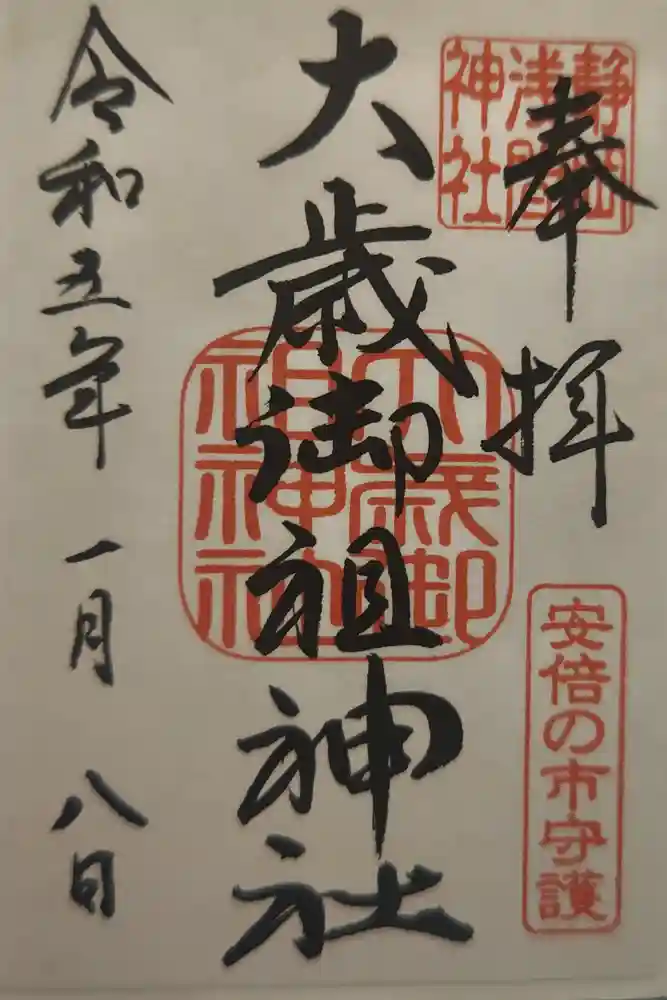 奉拝
静岡
浅間
神社
安倍の市守護
大歳御祖神社
大歳御
祖神社
令和五年 一月 八日